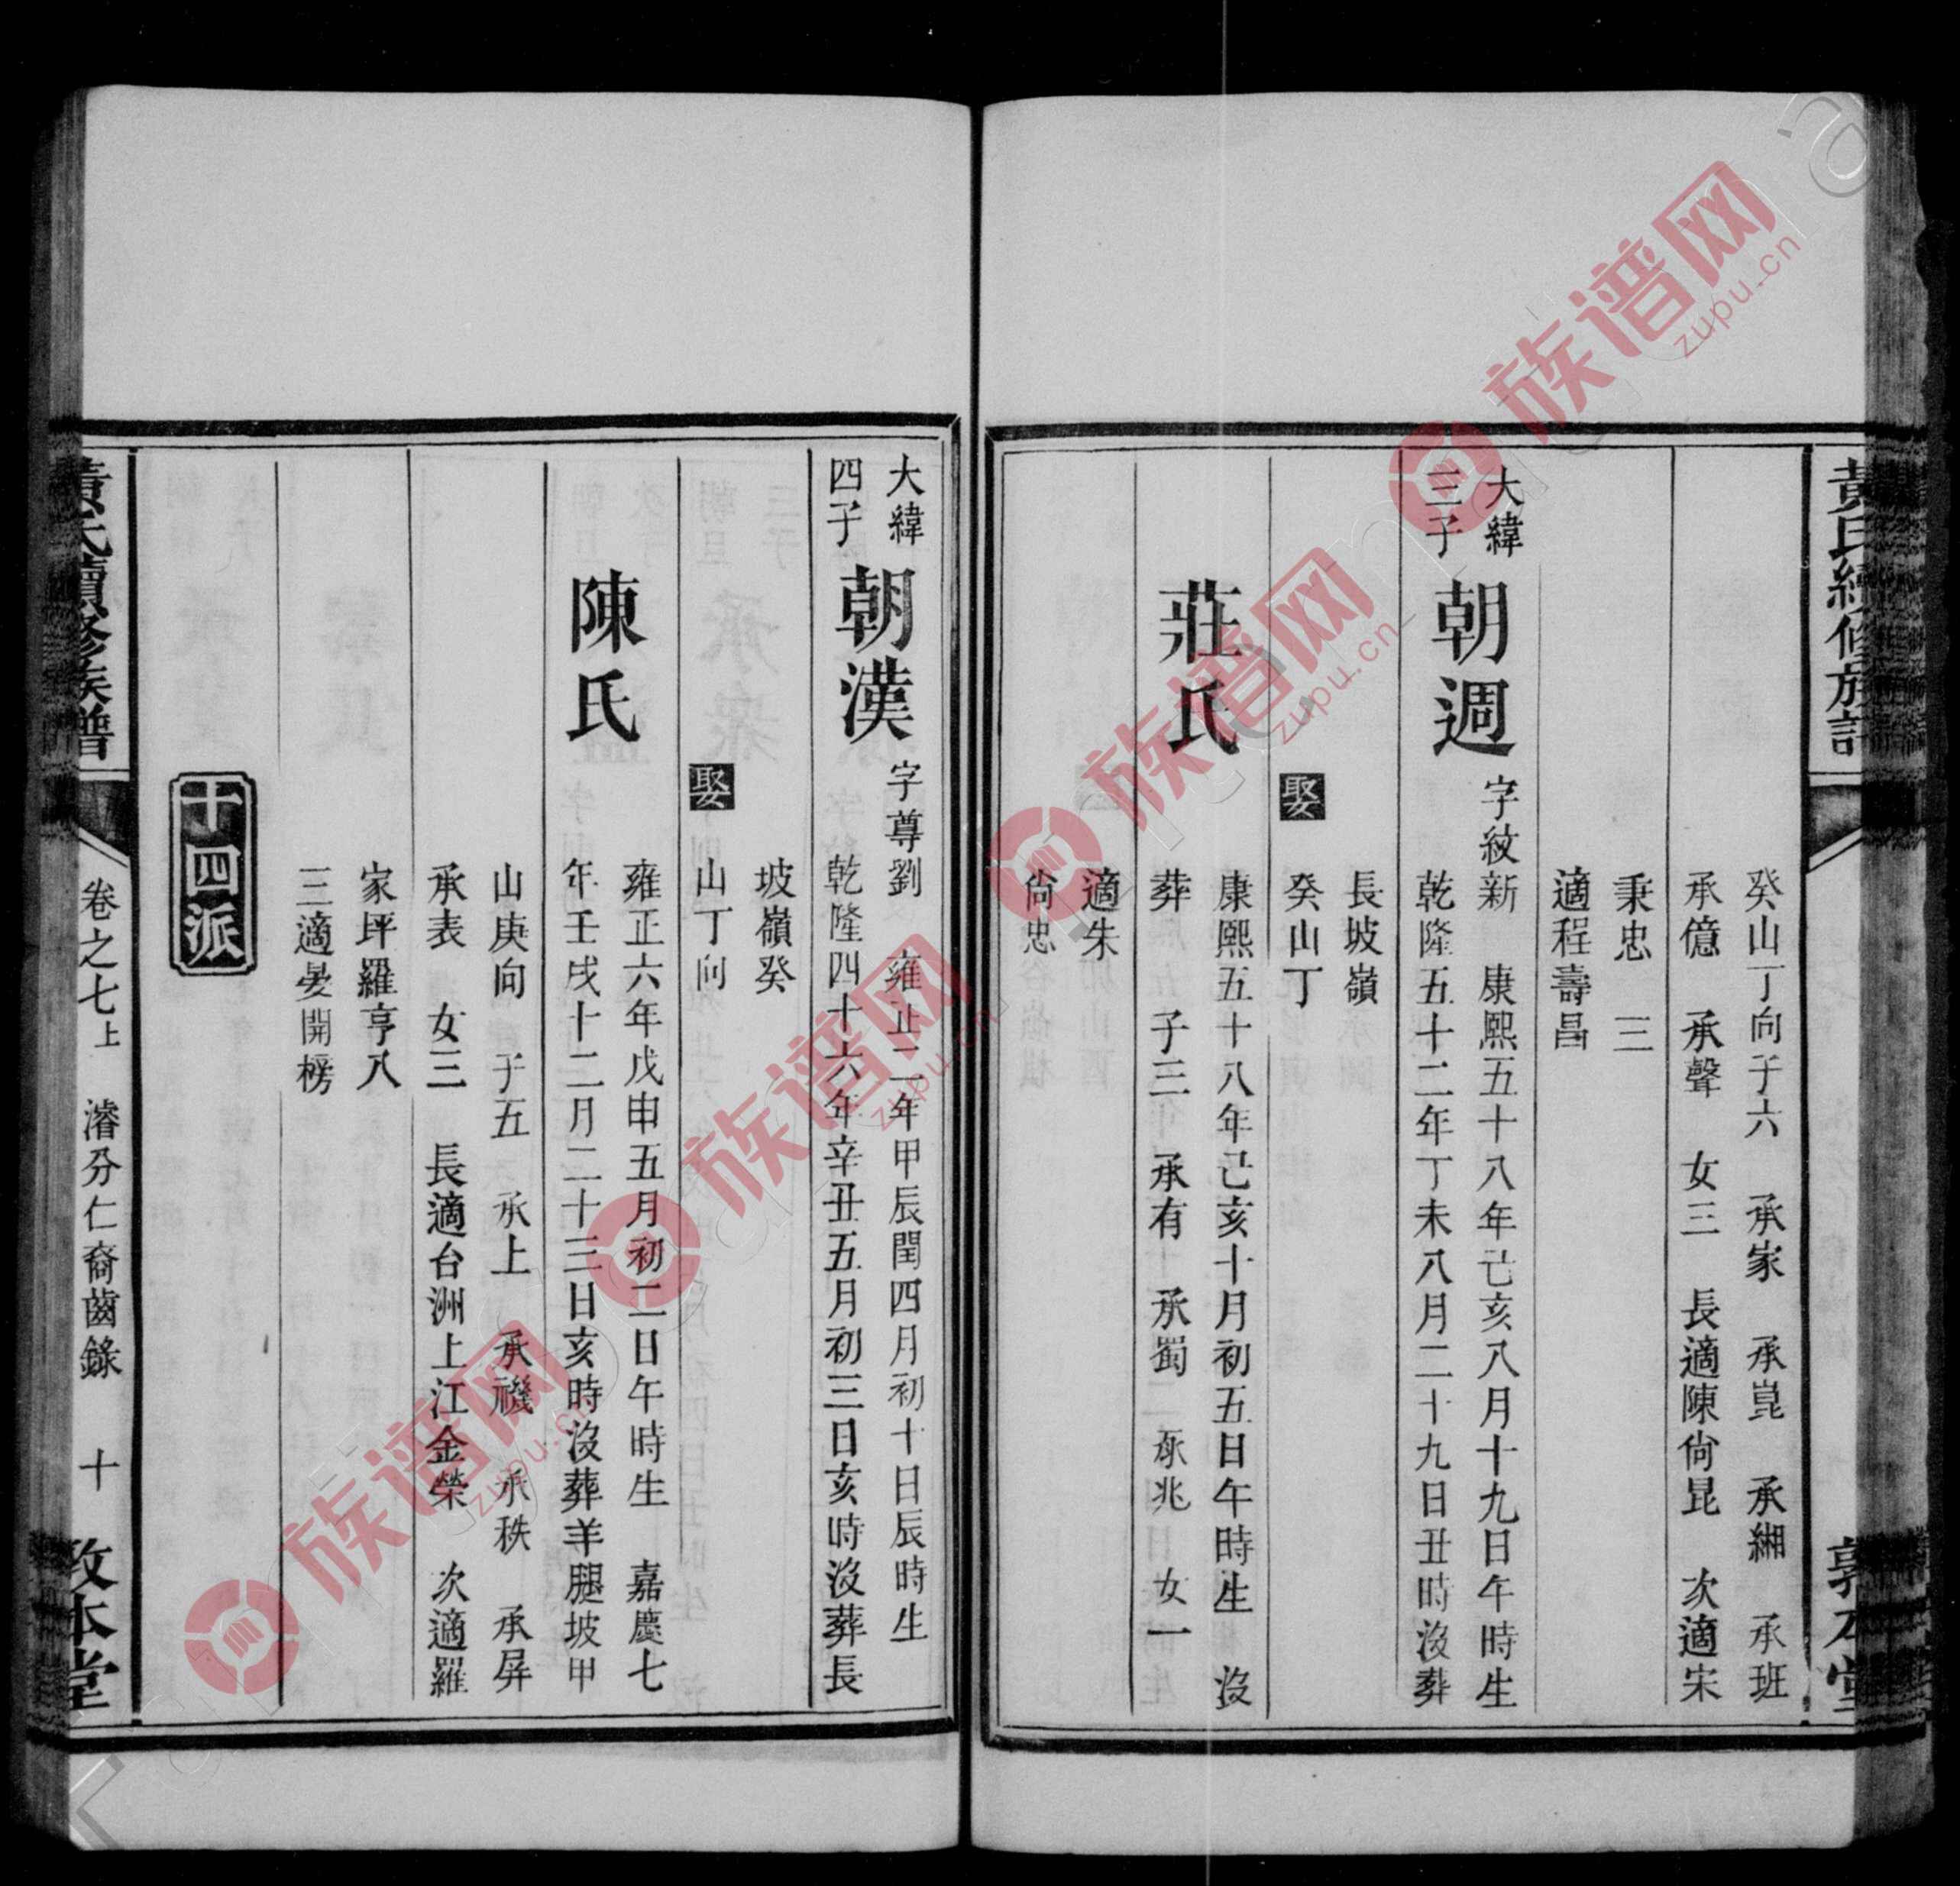 癸山丁向子六　承家　承崑　承緗　承班
承億　承聲　女三　長適陳尙昆　次適宋
秉忠　三
適程壽昌
大緯
三子
朝週
字紋新　康熙五十八年己亥八月十九日午時生
乾隆五十二年丁未八月二十九日丑時沒葬
長坡嶺
癸山丁
娶
莊氏
康熙五十八年己亥十月初五日午時生　沒
葬　子三　承有　承蜀　承兆　女一
適朱
尙忠
大緯
四子
朝漢
字尊劉　雍正二年甲辰閏四月初十日辰時生
乾隆四十六年辛丑五月初三日亥時沒葬長
坡嶺癸
山丁向
娶
陳氏
雍正六年戊申五月初二日午時生　嘉慶七
年壬戌十二月二十三日亥時沒葬羊腿坡甲
山庚向　子五　承上　承禨　承秩　承屏
承表　女三　長適台洲上江金榮　次適羅
家坪羅亨八
三適晏開榜
十四派
黃氏續修族譜
卷之七上　濬分仁裔齒錄　十
敦本堂
族谱网
zupu.cn
族谱网
zupu.cn
族谱网
zupu.cn
族谱网
zupu.cn